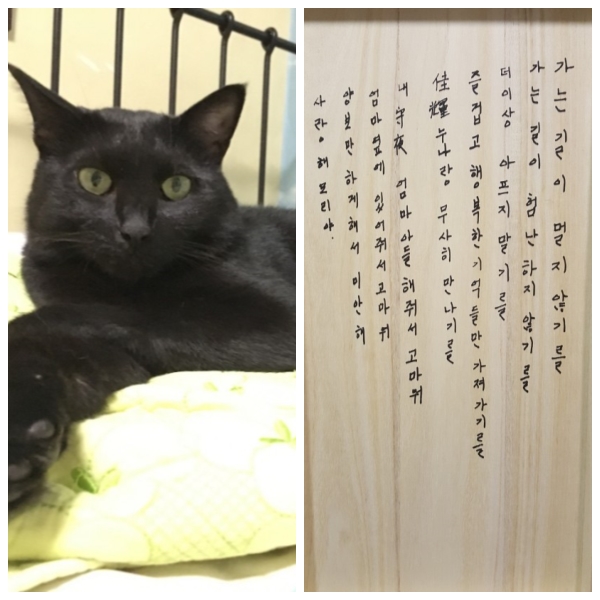 가는 길이 멀지 않기를
가는 길이 험난하지 않기를
더이상 아프지 말기를
즐겁고 행복한 기억들만 가져가기를
佳輝누나랑 무사히 만나기를
내 守夜 엄마아들 해줘서 고마워
엄마 옆에 있어줘서 고마워
양보만 하게해서 미안해
사랑해 모리야.